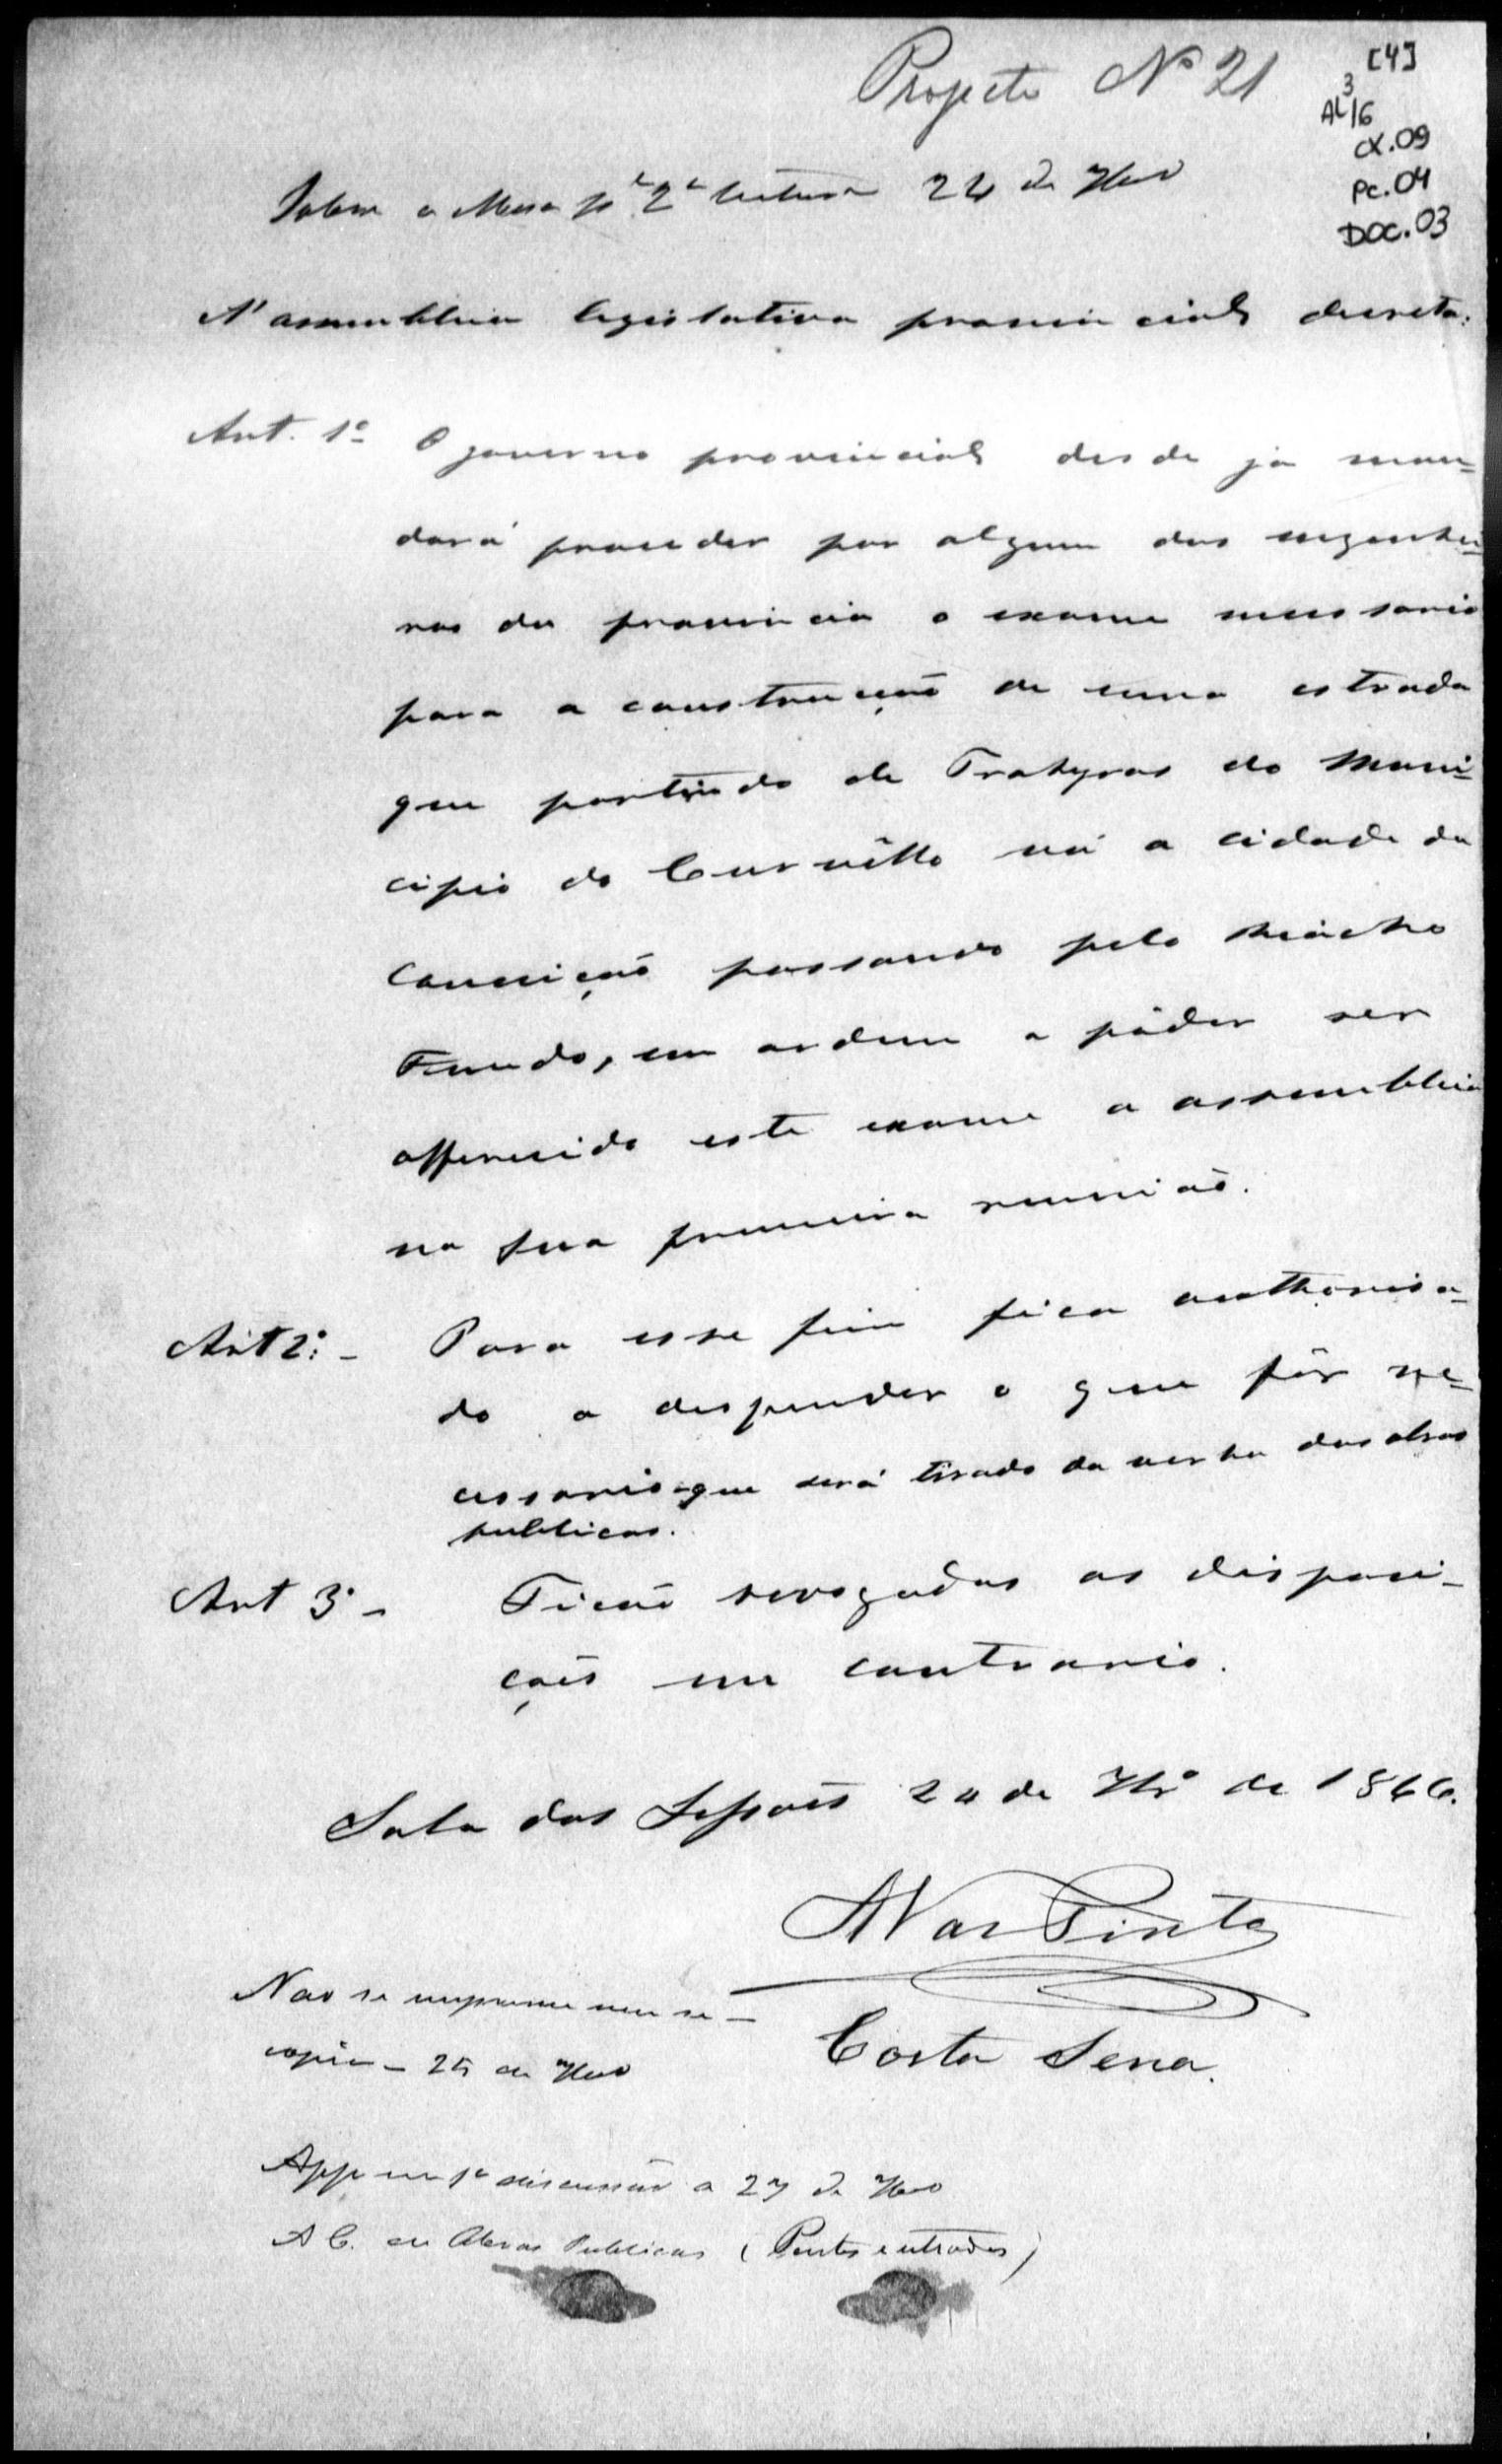 Projecto Nº 21
[4]
AL 3/6
CX.09
PC.04
DOC.03
Sobre a Mesa pª 2ª leitura 24 de 9bro
A' assembleia legislativa provincial decreta:
Art. 1º O governo provincial desde já man-
dará proceder por algum dos engenhei-
ros da provincia o exame necessario
para a construcção de uma estrada
que partindo de Trahyras do Muni-
cipio do Curvêllo vá a cidade da
Conceição passando pelo Riácho
Fundo, em ordem a pôder ser
offerecido este exame a assembleia
na sua primeira reunião.
Art 2º - Para esse fim fica authorisa-
do a despender o que fôr ne-
cessario que será tirado da verba das obras
publicas.
Art 3º - Ficão revogadas as disposi-
ções em contrario.
Sala das Sessões 24 de de 1866.
A Vaz Pinto
Costa Sena.
Não se imprime nem se -
copie - 25 de 9bro
App em 1ª discussão a 27 de 9bro
A C. de Obras Publicas (Pontes e estradas)